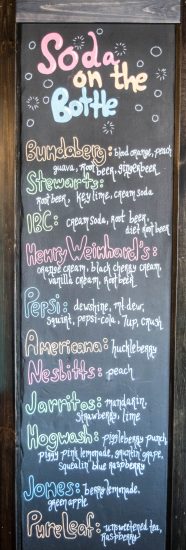 Soda
on the
Bottle
Bundaberg: blood orange, peach
guava, root beer, gingerbeer
Stewarts:
root beer, key lime, cream soda
IBC: cream soda, root beer,
diet root beer
Henry Weinhard's:
orange cream, black cherry cream,
vanilla cream, root beer
Pepsi: dewshine, mt. dew,
squirt, pepsi-cola, 7up, crush
Americana: huckleberry
Nesbitts: peach
Jarritos: mandarin,
strawberry, lime
Hogwash: piggleberry punch,
piggy pink lemonade, gruntin grape,
squealin blue raspberry
Jones: berry lemonade,
green apple
PureLeaf: unsweetened tea,
raspberry